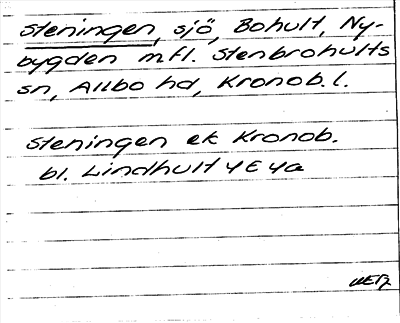 Steningen, sjö, Bohult, Ny-
bygden m.fl. Stenbrohults
sn, Allbo hd, Kronob. l.
Steningen ek Kronob.
bl. Lindhult 4E4a